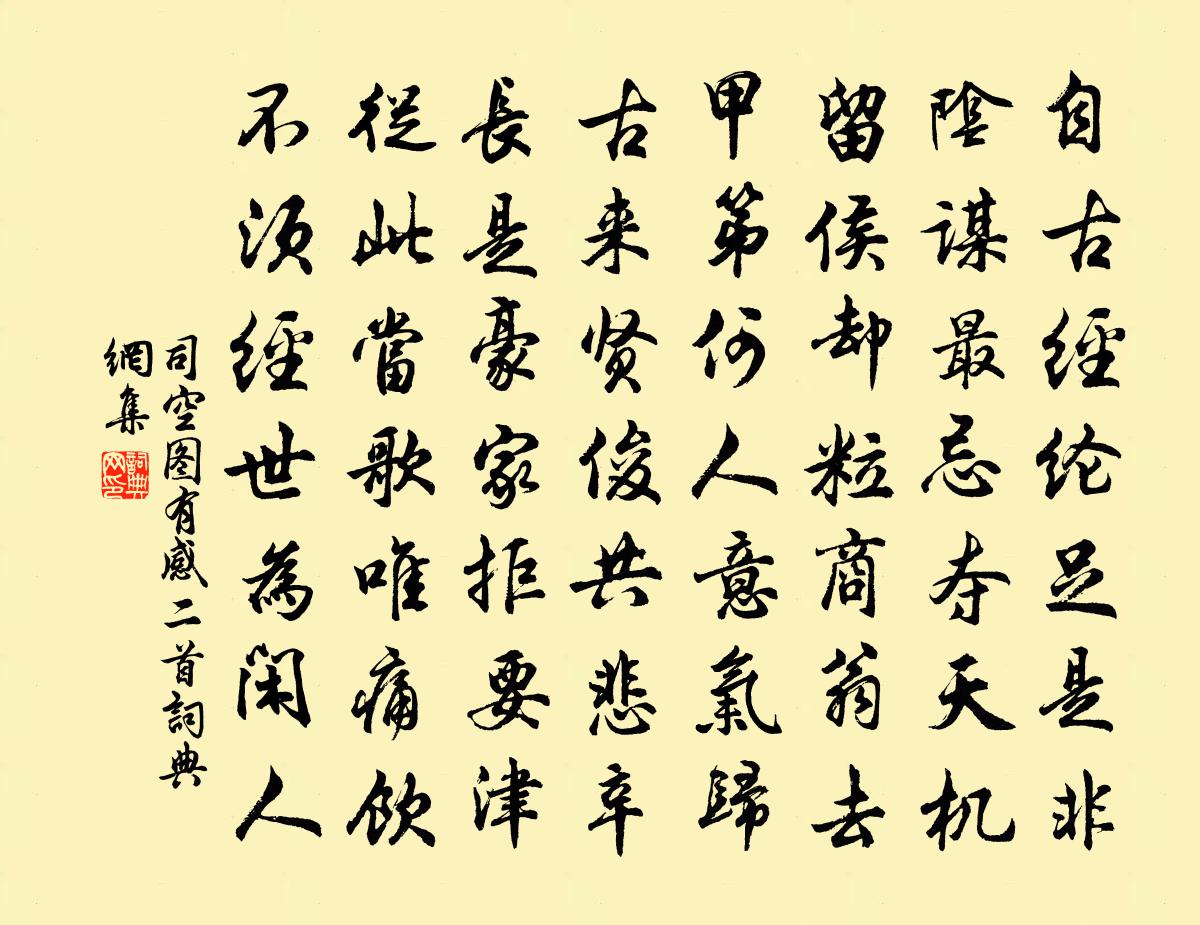 自古經纶足是非
陰謀最忌夺天机
留侯却粒商翁去
甲第何人意氣歸
古来贤俊共悲辛
長是豪家拒要津
從此當歌唯痛饮
不须經世為閑人
司空图有感二首詞典
網集
詞典
网印